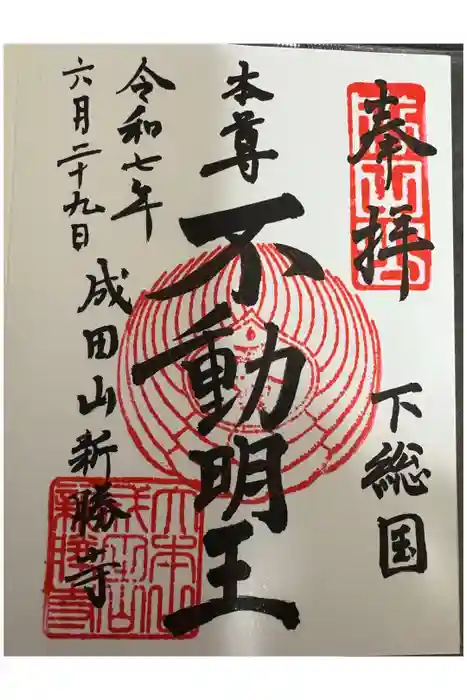 奉拝
下総国
本尊
不動明王
令和七年
六月二十九日
成田山新勝寺
大本山成田山新勝寺